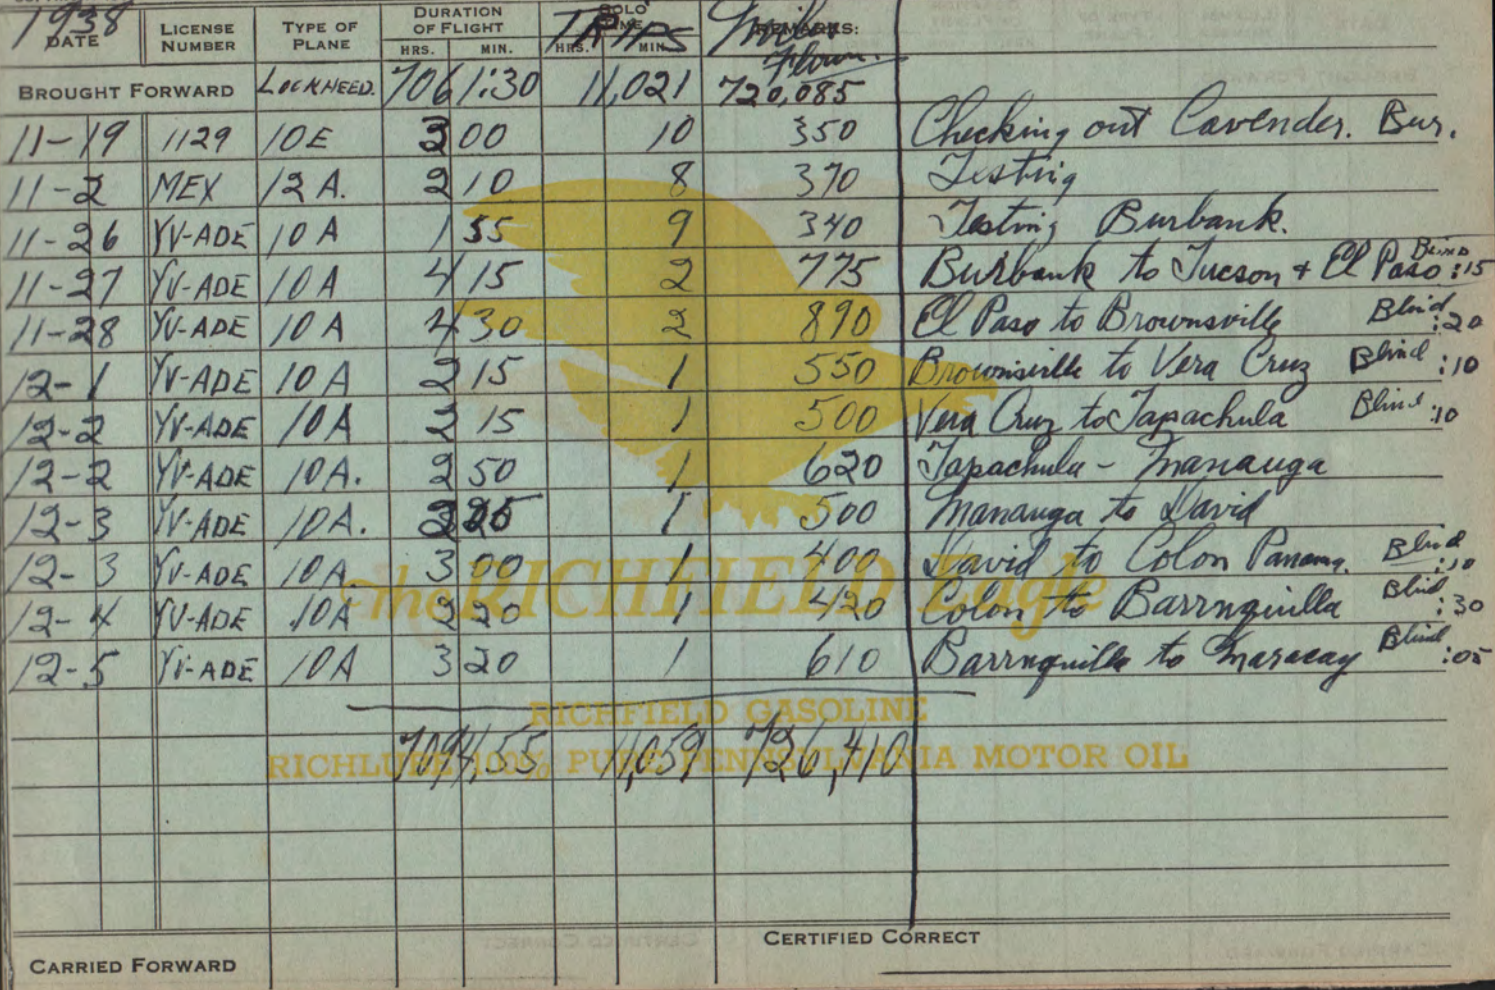 1938
DATE LICENSE NUMBER TYPE OF PLANE DURATION OF FLIGHT HRS. MIN. SOLO TIME HRS. MIN. TRIPS REMARKS: Miles Flown.
BROUGHT FORWARD LOCKHEED. 7061:30 11,021 720,085
11-19 1129 10E 3 00 10 350 Checking out Cavender. Bur.
11-2 MEX 12A. 2 10 8 370 Testing
11-26 YV-ADE 10A 1 55 9 340 Testing Burbank.
11-27 YV-ADE 10A 4 15 2 775 Burbank to Tucson + El Paso Blind :15
11-28 YV-ADE 10A 4 30 2 890 El Paso to Brownsville Blind :20
12-1 YV-ADE 10A 2 15 1 550 Brownsville to Vera Cruz Blind :10
12-2 YV-ADE 10A 2 15 1 500 Vera Cruz to Tapachula Blind :10
12-2 YV-ADE 10A. 2 50 1 620 Tapachula - Mananga
12-3 YV-ADE 10A. 2 25 1 500 Mananga to David
12-3 YV-ADE 10A 3 00 1 400 David to Colon Panama. Blind :10
12-4 YV-ADE 10A 2 20 1 420 Colon to Barrnquilla Blind :30
12-5 YV-ADE 10A 3 20 1 610 Barrnquilla to Maracay Blind :05
The RICHFIELD Eagle
RICHFIELD GASOLINE
7094,55 11,059 726,410
RICHLUBE 100% PURE PENNSYLVANIA MOTOR OIL
CERTIFIED CORRECT
CARRIED FORWARD